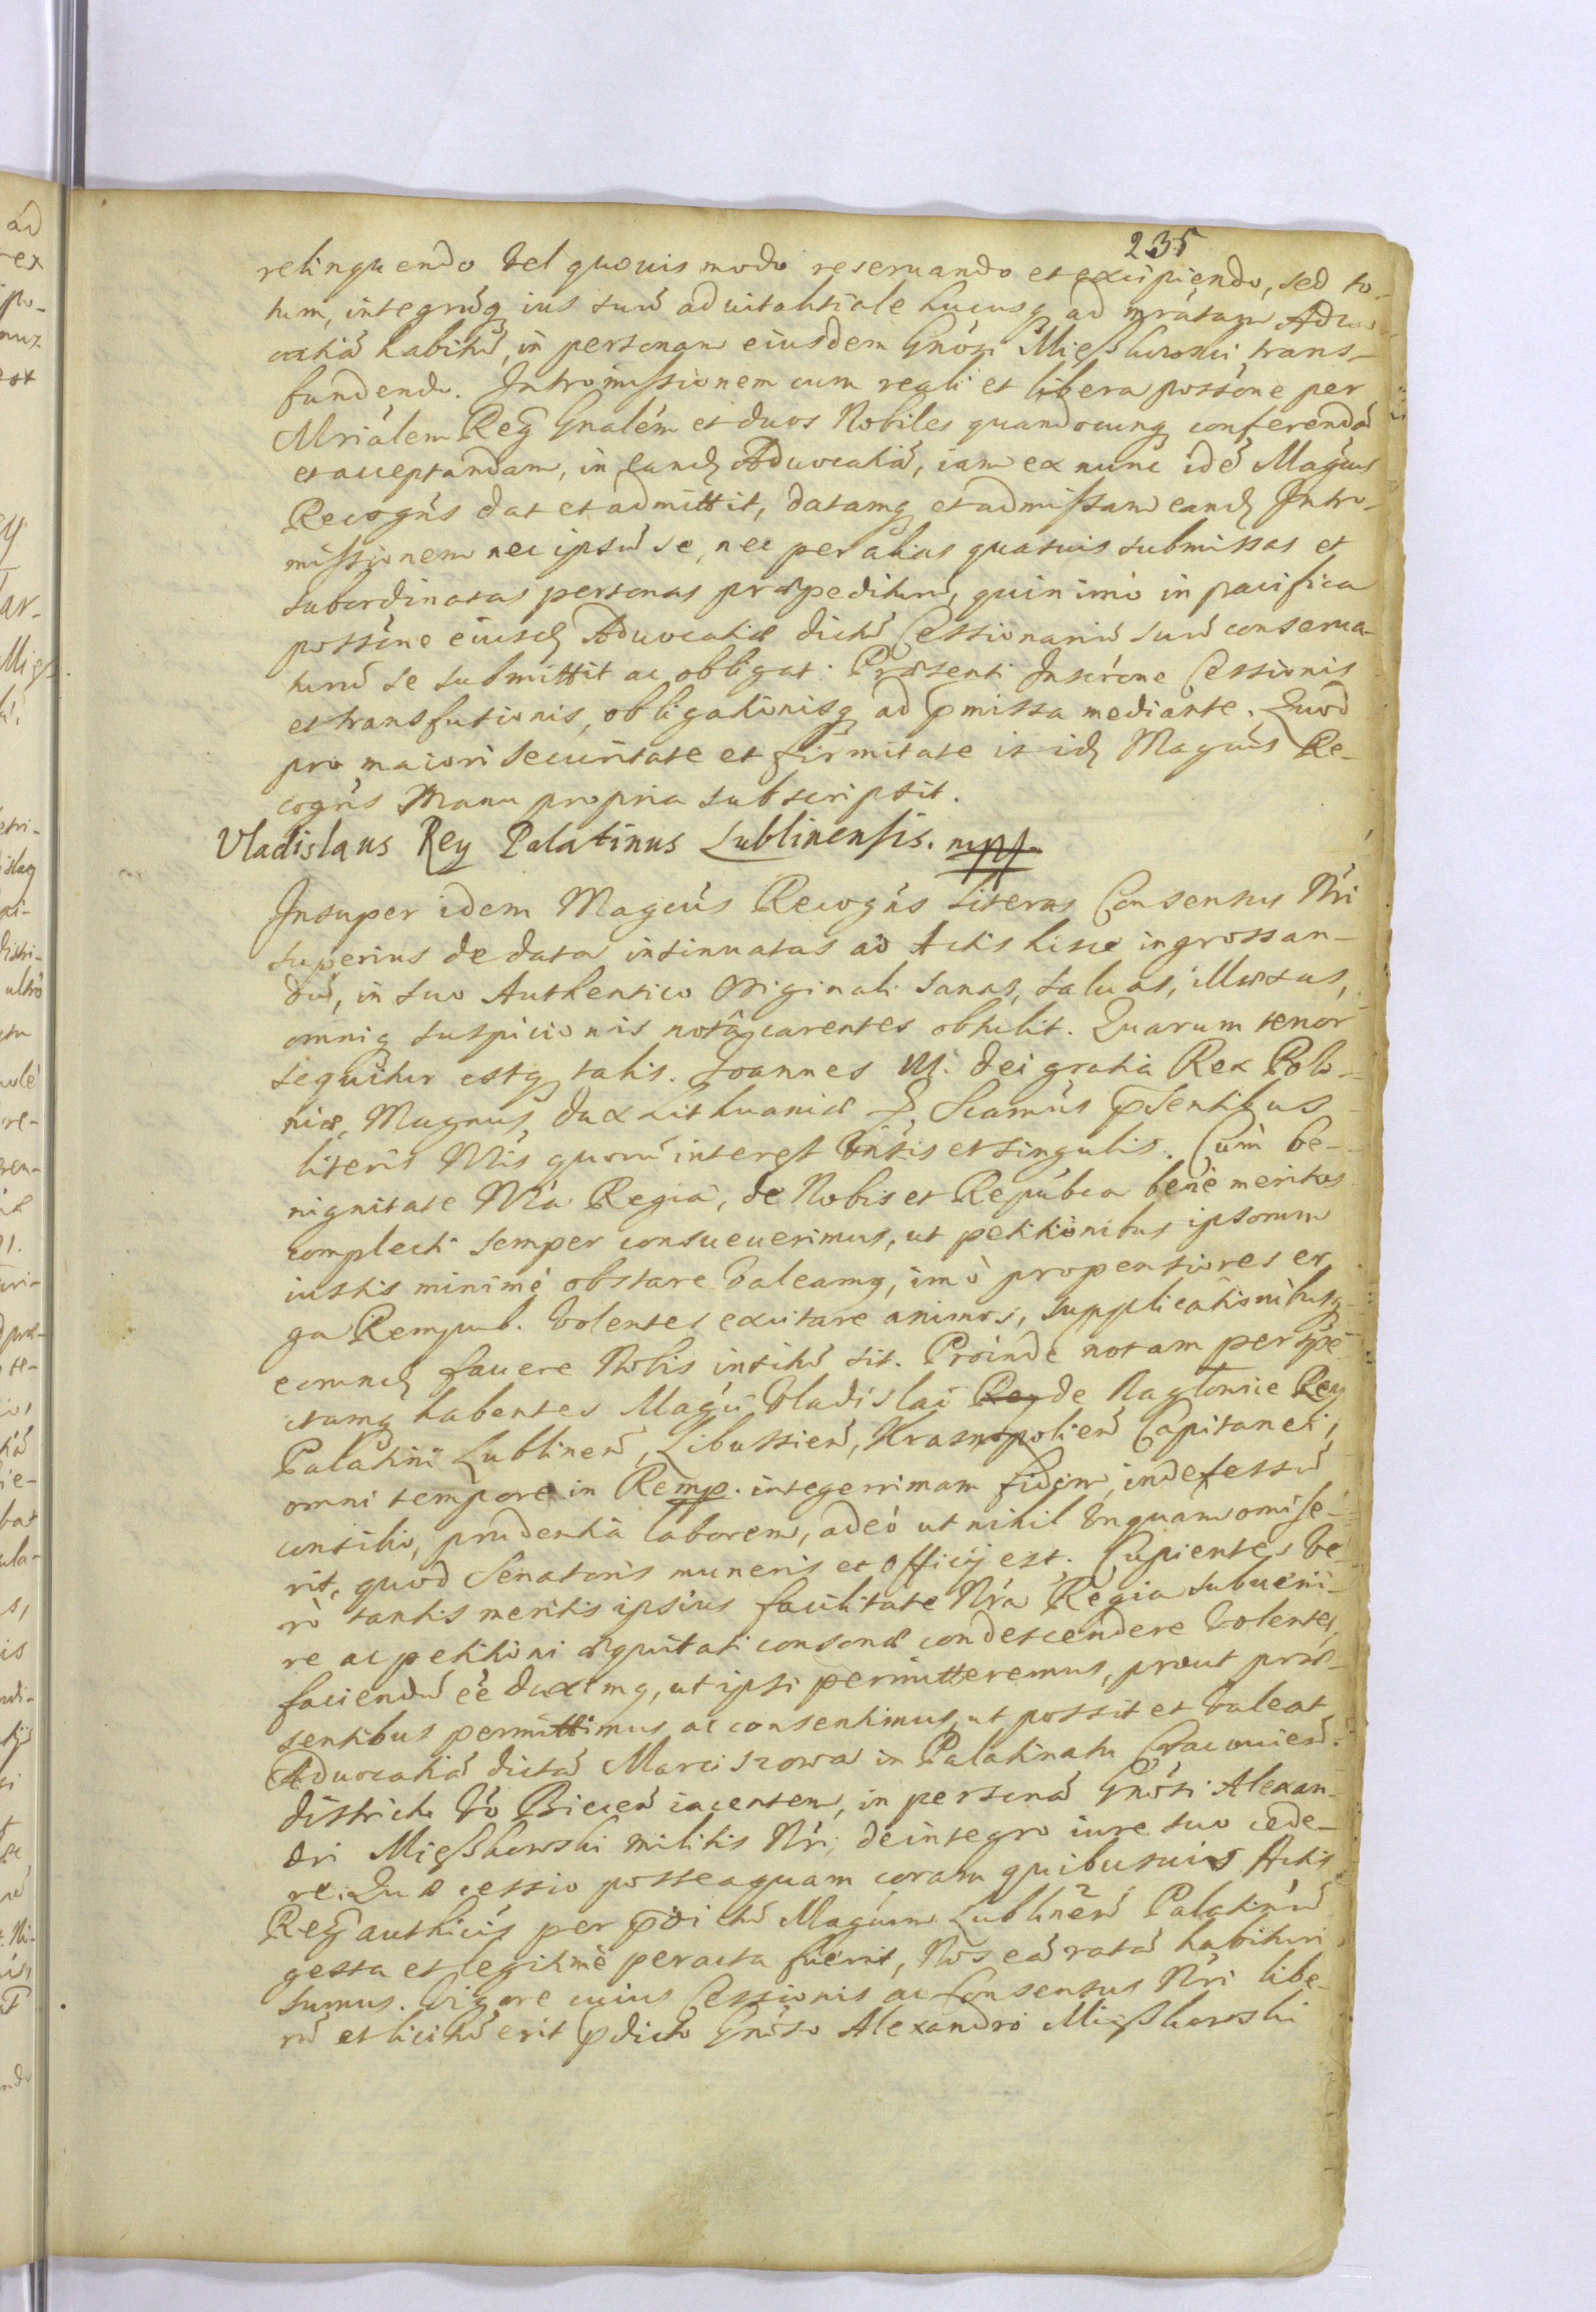 235
relinquendo vel quouis modo reseruando et excipiendo, sed to-
tum, integrúq ius suú aduitalitiale hucusq ad mratam Aduo-
catiá habitú, in personam eiusdem Gnósi Mięszkowski trans-
fundendo. Intromissionem cum reali et libera possóne per
Mriálem Reg̃ Gnalém et duos Nobiles quandocunq conferendá
et acceptandam, in eandȝ Aduocatiá, iam ex nunc idé Magcus
Recogńs dat et admittit, datamq et admissam eandȝ Intro-
missionem nec ipsú se, nec per alias quasuis submissas et
subordinatas personas præpediturú, quin imò in pacifica
possóne eiusdȝ Aduocatiæ dictú Cessionariú suú conserua-
turú se submittit ac obligat. Præsenti Inscróne Cessionis
et transfusionis, obligationisq ad p̃missa mediante. Quod
pro maiori securitate et firmitate is idȝ Magcús Re-
cogńs Manu propria subscripsit.
Vladislaus Rey Palatinus Lublinensis. mpp
Insuper idem Magcús Recogńs literas Consensus Nri
superius de data insinuatas ad Actis hisce ingrossan-
dú, in suo Authentico Originali sanas, saluas, illæsas,
omniq suspicionis notâ carentes obtulit. Quarum tenor
sequitur estq talis. Joannes III. Dei gratia Rex Polo-
niæ, Magnus Dux Lithuaniæ &. Scamús p̃sentibus
literis Nris quorú interest vńsis et singulis. Cum be-
nignitate Nrá Regia, de Nobis et Repúbca benè meritos
complecti semper consueuerimus, ut petitionibus ipsorum
iustis minimè obstare valeamq, imò propensiores er
ga Rempub. volentes excitare animos, supplicationibusq
eorundȝ fauere Nobis insitú sit. Proinde notam perspe
ctamq habentes Magci Vladislai Rey de Nagłowice Rey
Palatini Lublineń, Libussień, Krasnopolień Capitanei,
omni tempore in Remp. integerrimam fidem, indefessú
consilio, prudentiâ laborem, adeò ut nihil vnquam omise-
rit, quod Senatoris muneris et Officij est. Cupientes ve-
rò tantis meritis ipsius facilitate Nrá Regia subueni-
re ac petitioni æquitati consonæ condescendere volentes,
faciendú éé duximq, ut ipsi permitteremus, prout præ-
sentibus permittimus ac consentimus, ut possit et valeat
Aduocatiá dictá Marciszowa in Palatinatu Cracouień.
districtu vó Biecen iacentem, in personá Gnósi Alexan-
dri Mięszkowski militis Nri, de integro iure suo cede-
re. Quæ cessio posteaquam coram quibusuis Actis
Reg̃ authćis per p̃dictú Magcum Lublinéń Palatinú
gesta et legitimè peracta fuerit, Nos eá ratá habituri
sumus. Vigore cuius Cessionis ac Consensus Nri libe-
rú et licitú erit p̃dicto Gnóso Alexandro Mięszkowski